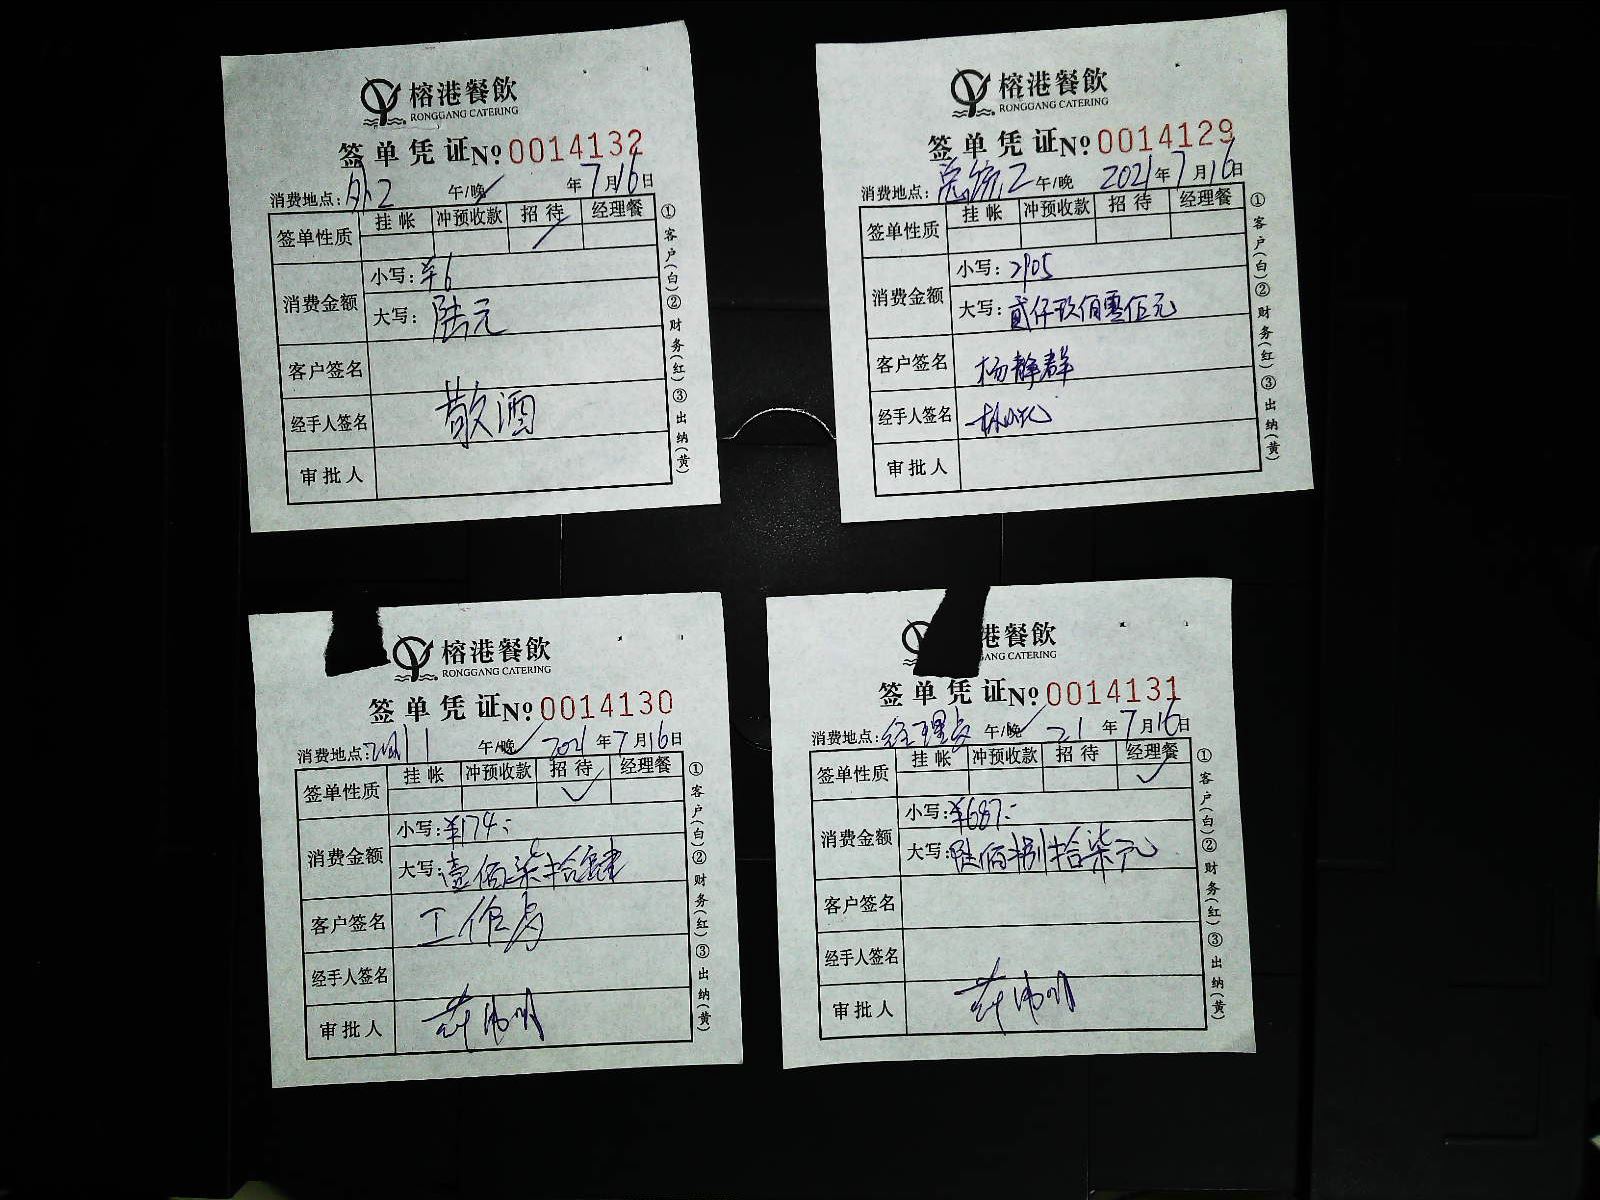 榕港餐飲
RONGGANG CATERING
签单凭证 No 0014132
消费地点: 外2 午/晚 年7月16日
签单性质 挂帐 冲预收款 招待 经理餐
消费金额
小写: ¥6
大写: 陆元
客户签名
经手人签名 散酒
审批人
①客户(白)②财务(红)③出纳(黄)
榕港餐飲
RONGGANG CATERING
签单凭证 No 0014129
消费地点: 2 午/晚 2021年7月16日
签单性质 挂帐 冲预收款 招待 经理餐
消费金额
小写: 2905
大写: 贰仟玖佰零伍元
客户签名 杨静群
经手人签名
审批人
①客户(白)②财务(红)③出纳(黄)
榕港餐飲
RONGGANG CATERING
签单凭证 No 0014130
消费地点: 午/晚 2021年7月16日
签单性质 挂帐 冲预收款 招待 经理餐
消费金额
小写: ¥174:
大写: 壹佰柒拾肆
客户签名 工作
经手人签名
审批人
①客户(白)②财务(红)③出纳(黄)
港餐飲
ANG CATERING
签单凭证 No 0014131
消费地点: 经理 午/晚 21年7月16日
签单性质 挂帐 冲预收款 招待 经理餐
消费金额
小写: ¥687:
大写: 陆佰捌拾柒元
客户签名
经手人签名
审批人
①客户(白)②财务(红)③出纳(黄)